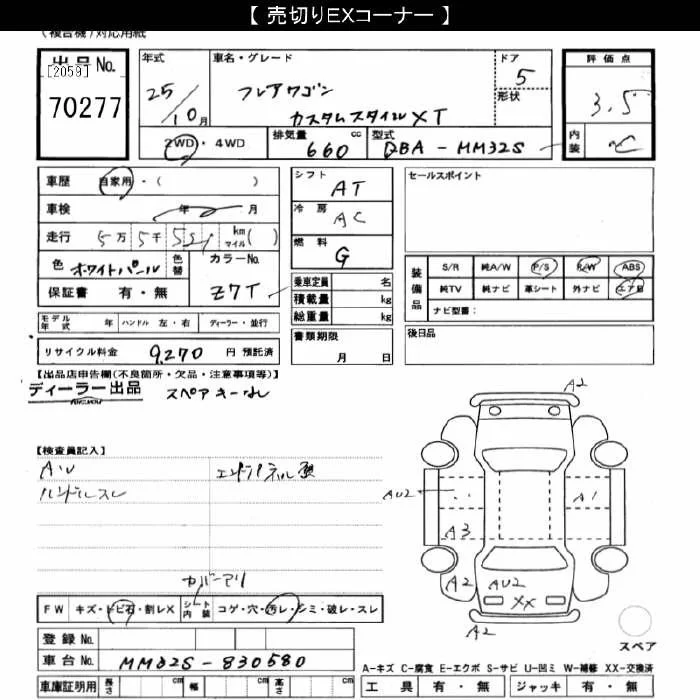 【 売切りEXコーナー 】
(複合機)対応用紙
出品No.
[2059]
70277
年式
25/10月
車名・グレード
フレアワゴン
カスタムスタイルXT
ドア
5
形状
評価点
3.5
内装
C
2WD・4WD
排気量
660 cc
型式
DBA-MM32S
車歴 自家用・( )
車検 年 月
走行 5万 5千 551 km マイル( )
色 ホワイトパール 色替
カラーNo.
Z7T
保証書 有・無
シフト
AT
冷房
AC
燃料
G
乗車定員 名
積載量 kg
総重量 kg
セールスポイント
装備品
S/R 純A/W P/S R/W ABS
純TV 純ナビ 革シート 外ナビ エア目
ナビ型番:
モデル年式 年 ハンドル 左・右 ディーラー・並行
リサイクル料金 9,270 円 預託済
書類期限
月 日
後日品
【出品店申告欄(不良箇所・欠品・注意事項等)】
ディーラー出品 スペアキーなし
【検査員記入】
AU
ハンドルスレ
エンドパネル歪
カバーアリ
FW キズ・トビ石・割レX シート内装 コゲ・穴・汚レ・シミ・破レ・スレ
登録No.
車台No. MM32S-830580
車庫証明用 長さ cm 幅 cm 高さ cm
A2
AU2
A1
A3
A2
AU2
XX
A2
スペア
A-キズ C-腐食 E-エクボ S-サビ U-凹ミ W-補修 XX-交換済
工具 有・無 ジャッキ 有・無